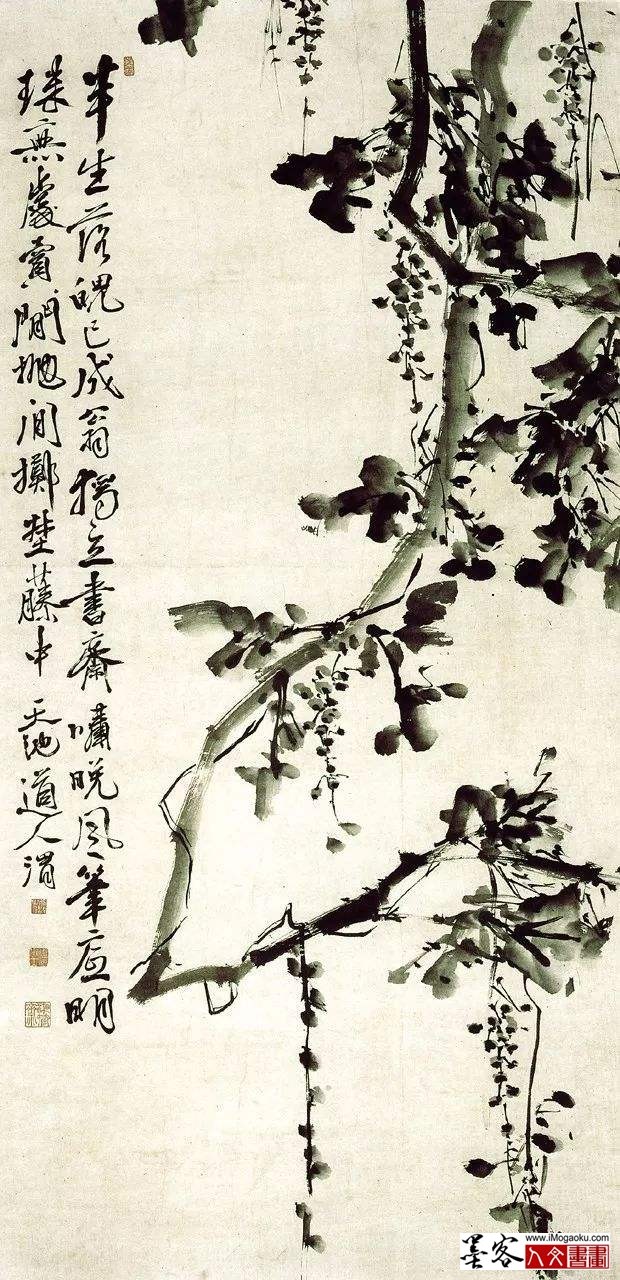 半生落魄已成翁獨立書齋嘯晚風筆底明
珠無處賣閒拋閒擲埜藤中 天池道人渭
www.iMogaoku.com
墨客人文書畫